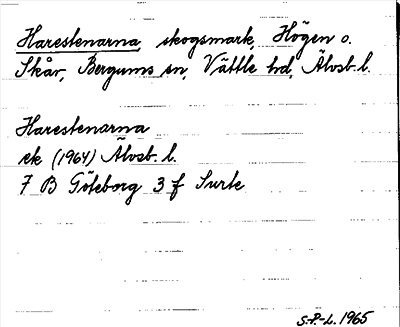 Harestenarna, skogsmark, Högen o.
Skår, Bergums sn, Vättle hd, Älvsb. l.
Harestenarna
ek (1964) Älvsb. l.
7 B Göteborg 3 f Surte
S.P.-L. 1965